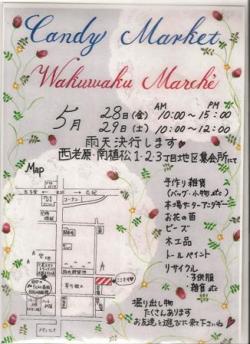 Candy Market
Wakuwaku Marché
AM PM
5月 28日(金) 10:00～15:00
29日(土) 10:00～12:00
雨天決行します♥
西老原・南植松1・2・3丁目地区集会所にて
Map
手作り雑貨
(バッグ・小物etc)
お花の苗
ビーズ
木工品
トールペイント
リサイクル
子供服
雑貨etc
掘り出し物
たくさんあります
お友達を連れて来て下さいね